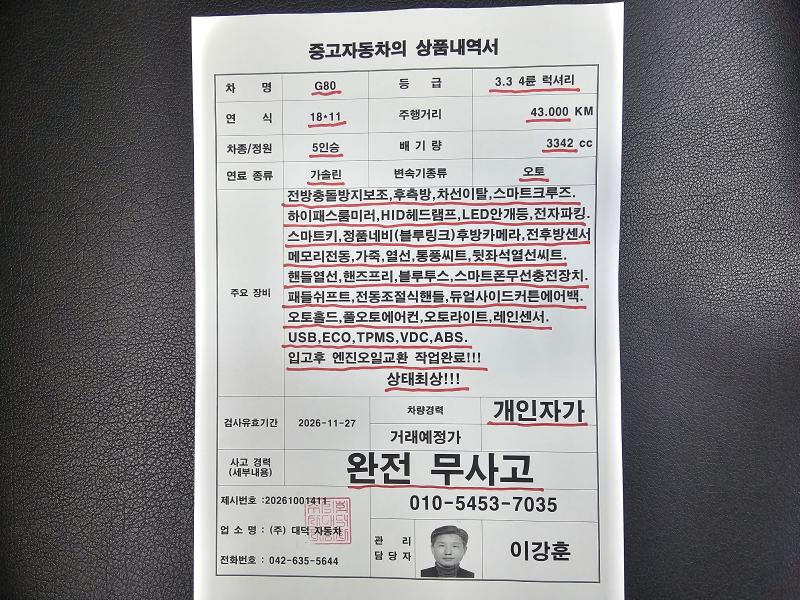 중고자동차의 상품내역서
차 명 G80 등 급 3.3 4륜 럭셔리
연 식 18*11 주행거리 43.000 KM
차종/정원 5인승 배 기 량 3342 cc
연료 종류 가솔린 변속기종류 오토
주요 장비
전방충돌방지보조,후측방,차선이탈,스마트크루즈.
하이패스룸미러,HID헤드램프,LED안개등,전자파킹.
스마트키,정품네비(블루링크)후방카메라,전후방센서
메모리전동,가죽,열선,통풍씨트,뒷좌석열선씨트.
핸들열선,핸즈프리,블루투스,스마트폰무선충전장치.
패들쉬프트,전동조절식핸들,듀얼사이드커튼에어백.
오토홀드,풀오토에어컨,오토라이트,레인센서.
USB,ECO,TPMS,VDC,ABS.
입고후 엔진오일교환 작업완료!!!
상태최상!!!
검사유효기간 2026-11-27 차량경력 개인자가
거래예정가
사고 경력
(세부내용)
완전 무사고
제시번호 :20261001411 010-5453-7035
업 소 명 : (주) 대덕 자동차
전화번호 : 042-635-5644
관 리
담 당 자
이강훈